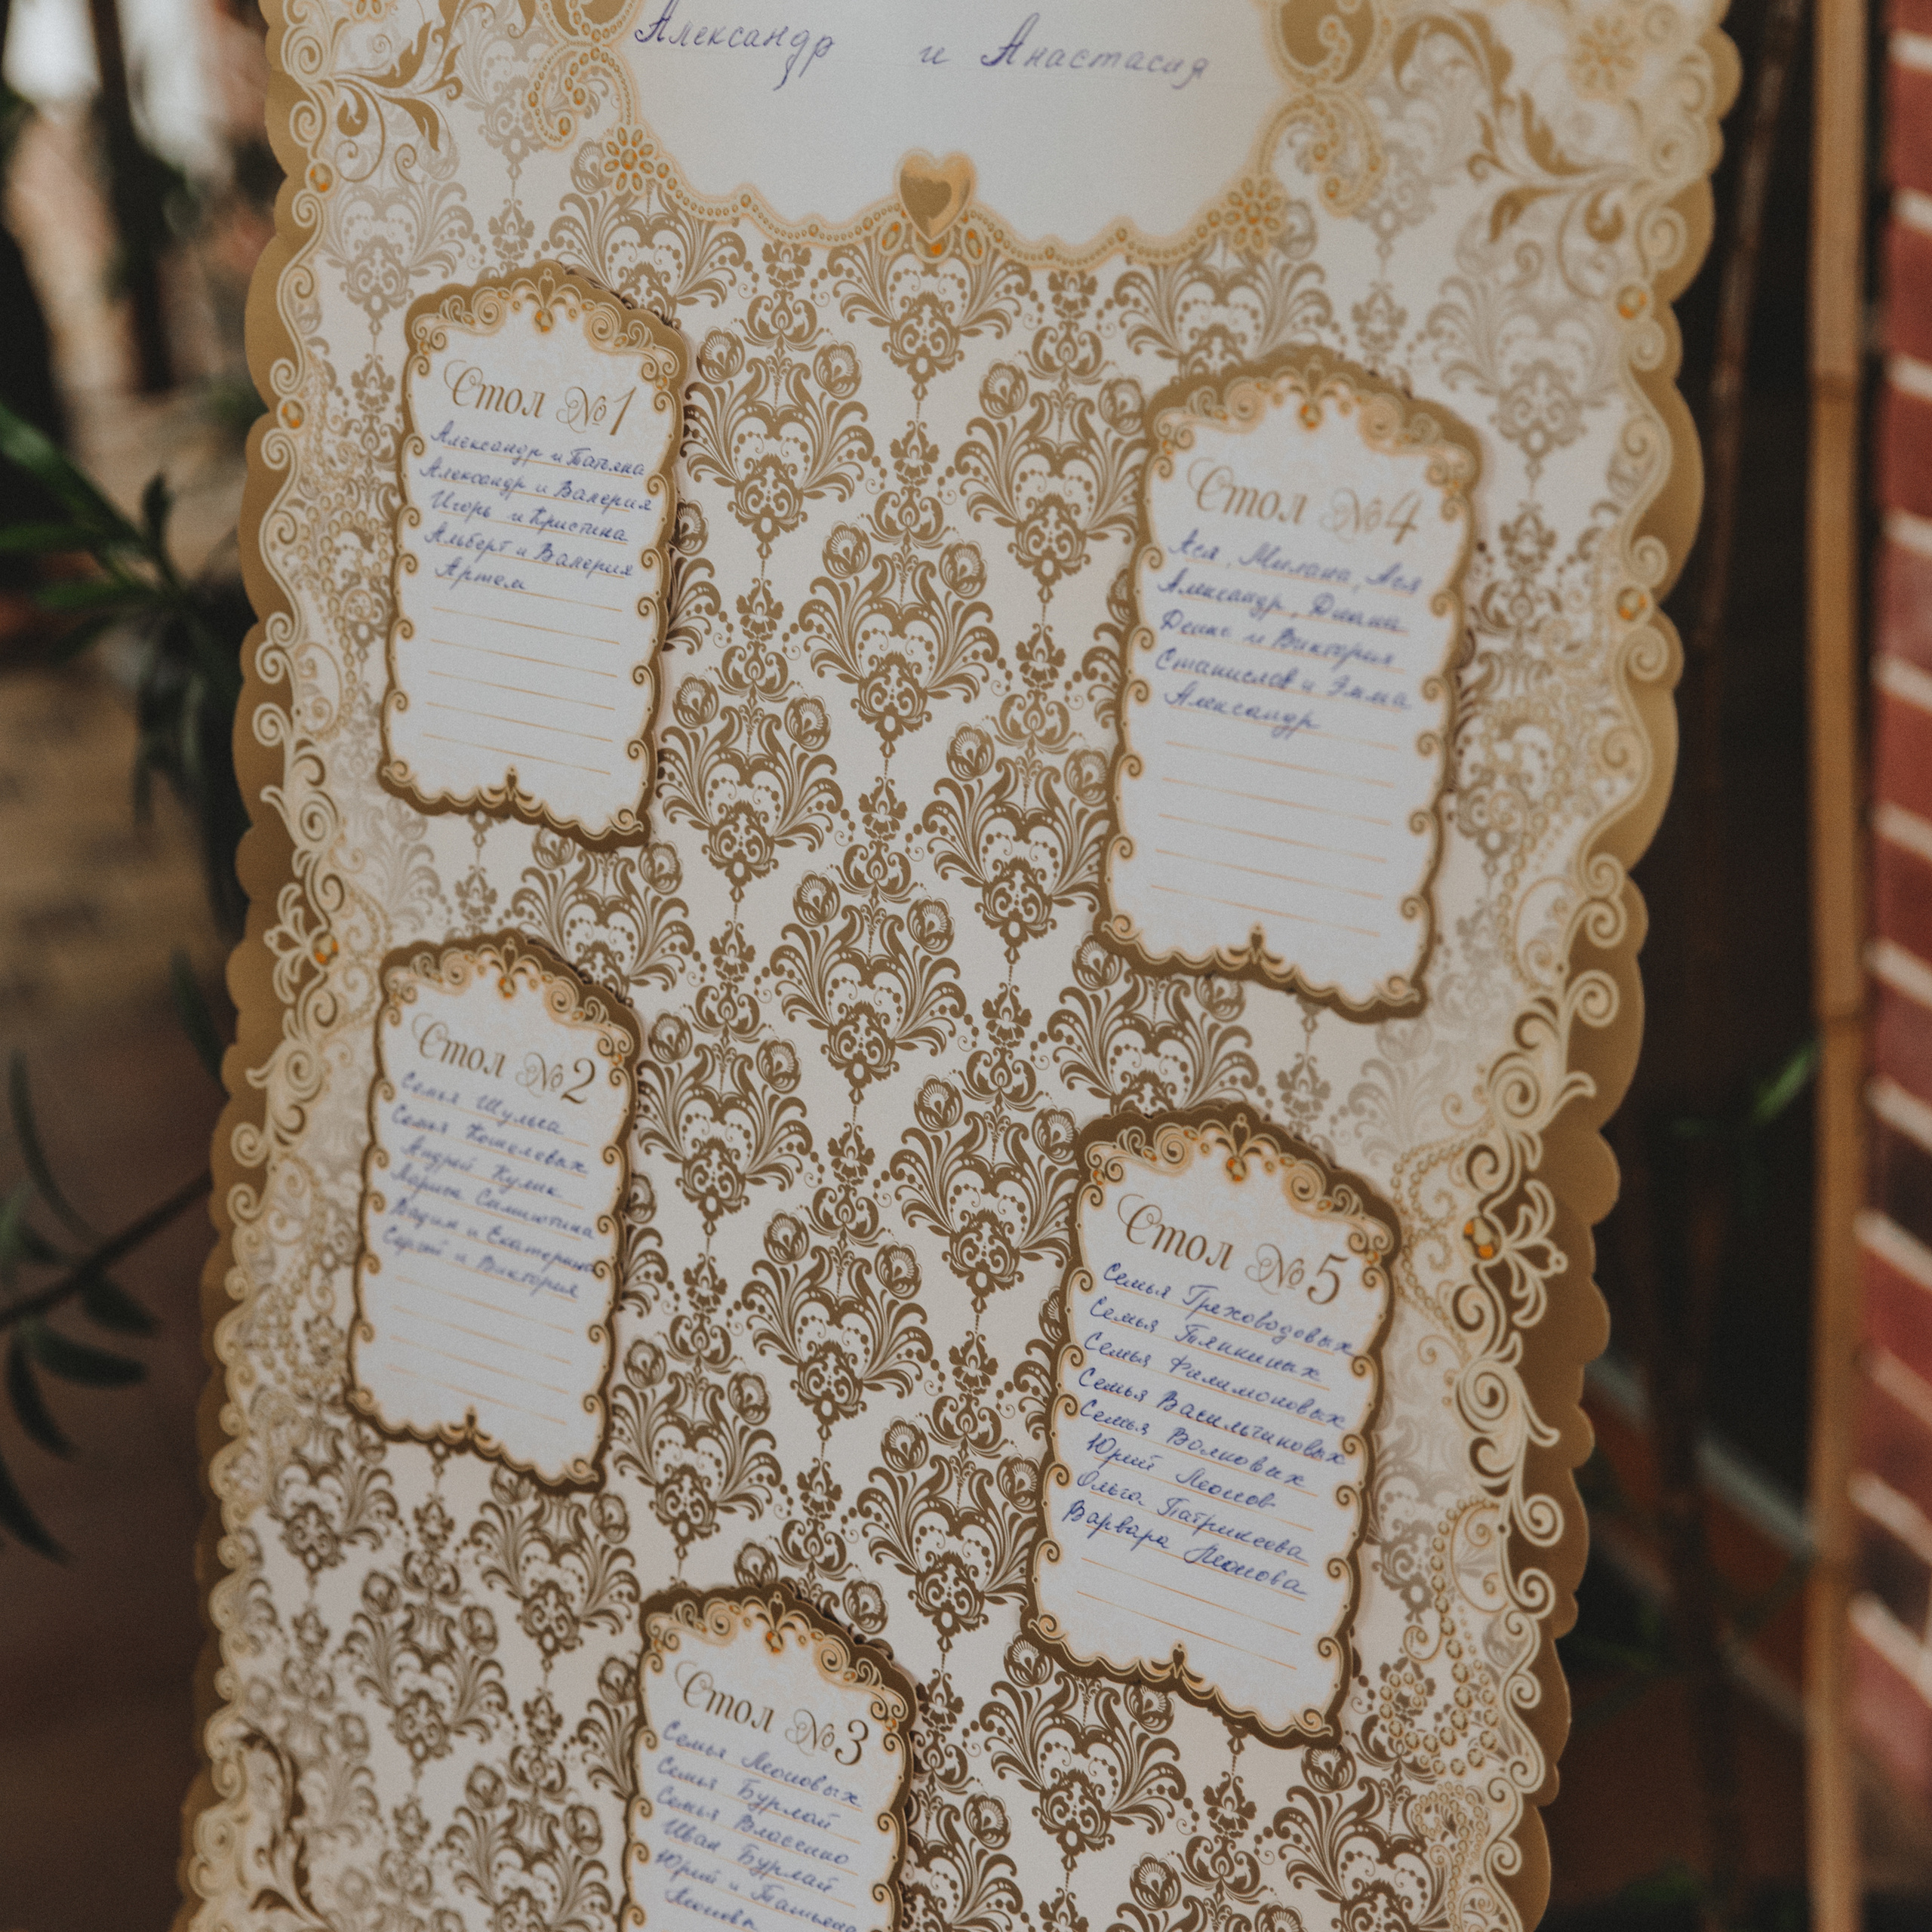 Александр и Анастасия
Стол №1
Александр и Татьяна
Александр и Валерия
Игорь и Кристина
Альберт и Валерия
Артем
Стол №4
Ася, Милана, Ася
Александр, Диана
Денис и Виктория
Станислов и Эмма
Александр
Стол №2
Семья Шульга
Семья Кошелевых
Андрей Кулик
Лариса
Вадим и Екатерина
Сергей и Виктория
Стол №5
Семья Греховодовых
Семья
Семья Филимоновых
Семья Васильчиковых
Семья Волковых
Юрий Леонов
Ольга Патрикеева
Варвара Леонова
Стол №3
Семья Леоновых
Семья Бурлай
Семья Власенко
Иван Бурлай
Юрий и Татьяна
Леоновы